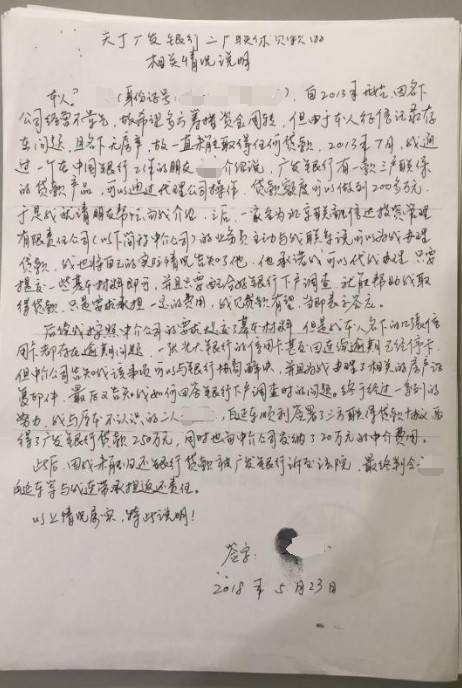 关于广发银行三户联保贷款的
相关情况说明
本人 (身份证号: ), 自2013年 因名下
公司经营不善, 故希望多方筹措资金周转, 但由于本人征信记录存
在问题, 且名下无房产, 故一直未能取得任何贷款。2013年7月, 我通
过一个在中国银行工作的朋友 介绍说, 广发银行有一款三户联保
的贷款产品, 可以通过代理公司操作, 贷款额度可以做到200多万元,
于是我就请朋友帮忙向我介绍。之后, 一家名为北京联 信达投资管理
有限责任公司(以下简称中介公司)的业务员主动与我联系说可以为我办理
贷款, 我也将自己的实际情况告知了他, 但承诺我可以代我办理, 只要
提交一些基本材料即可, 并且只要配合好银行下户调查, 就能帮助我取
得贷款, 只是需求承担一定的费用, 我见贷款有望, 当即表示答应。
后续我按照中介公司的要求提交了基本材料, 但是我本人名下的几张信
用卡都存在逾期问题, 一张光大银行的信用卡甚至因连续逾期已经停卡,
但中介公司告知我该事项可以与银行协商解决, 并且为我办理了相关的房产证
复印件, 最后又告知我如何回答银行下户调查时的问题。终于经过一系列的
努力, 我与原本不认识的二人 , 顺利签署了三方联保贷款协议 获
得了广发银行贷款250万元, 同时也向中介公司交纳了20万元的中介费用。
此后, 因我未能归还银行贷款 被广发银行诉至法院, 最终判令
等与我连带承担返还责任。
以上情况属实, 特此说明!
签字:
2018年5月23日